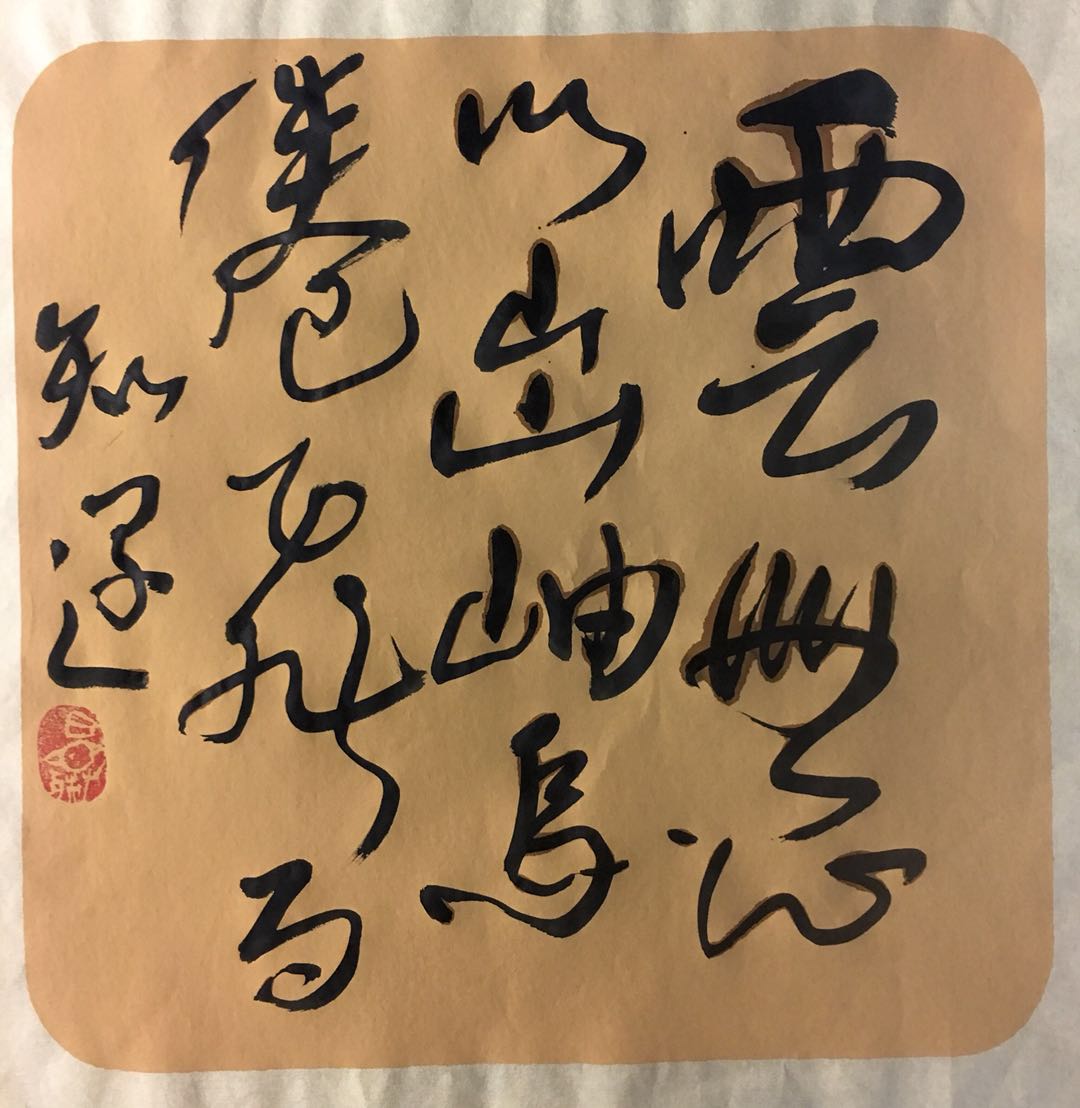 雲無心
以出岫鳥
倦飛而
知還